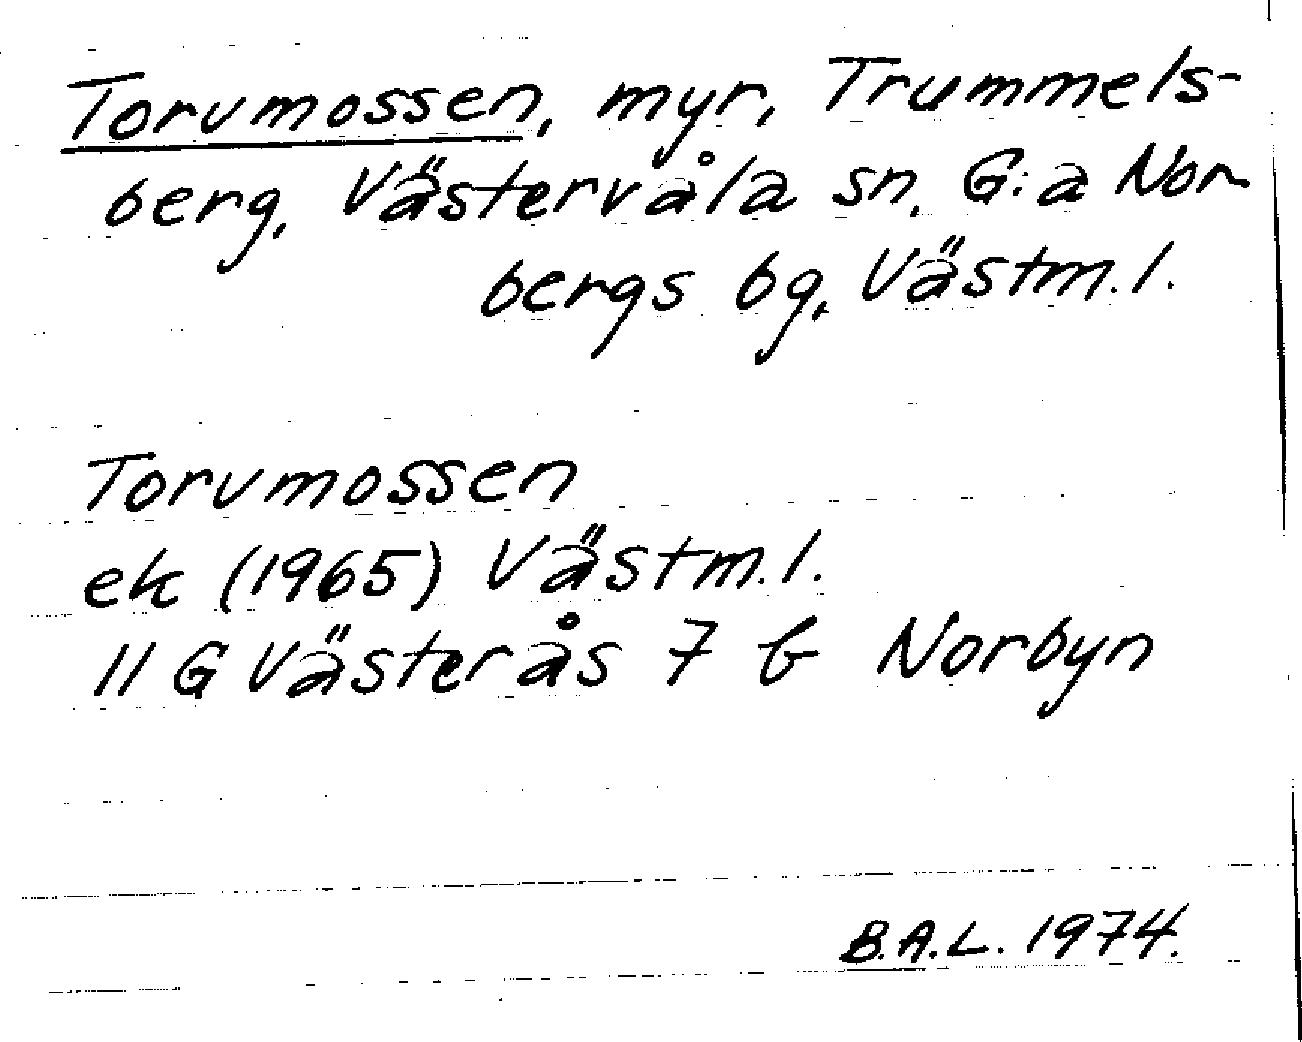 Torvmossen, myr, Trummels-
berg, Västervåla sn, G:a Nor-
bergs bg, Västm.l.
Torvmossen
ek (1965) Västm.l.
11 G Västerås 7 b Norbyn
B.A.L. 1974.